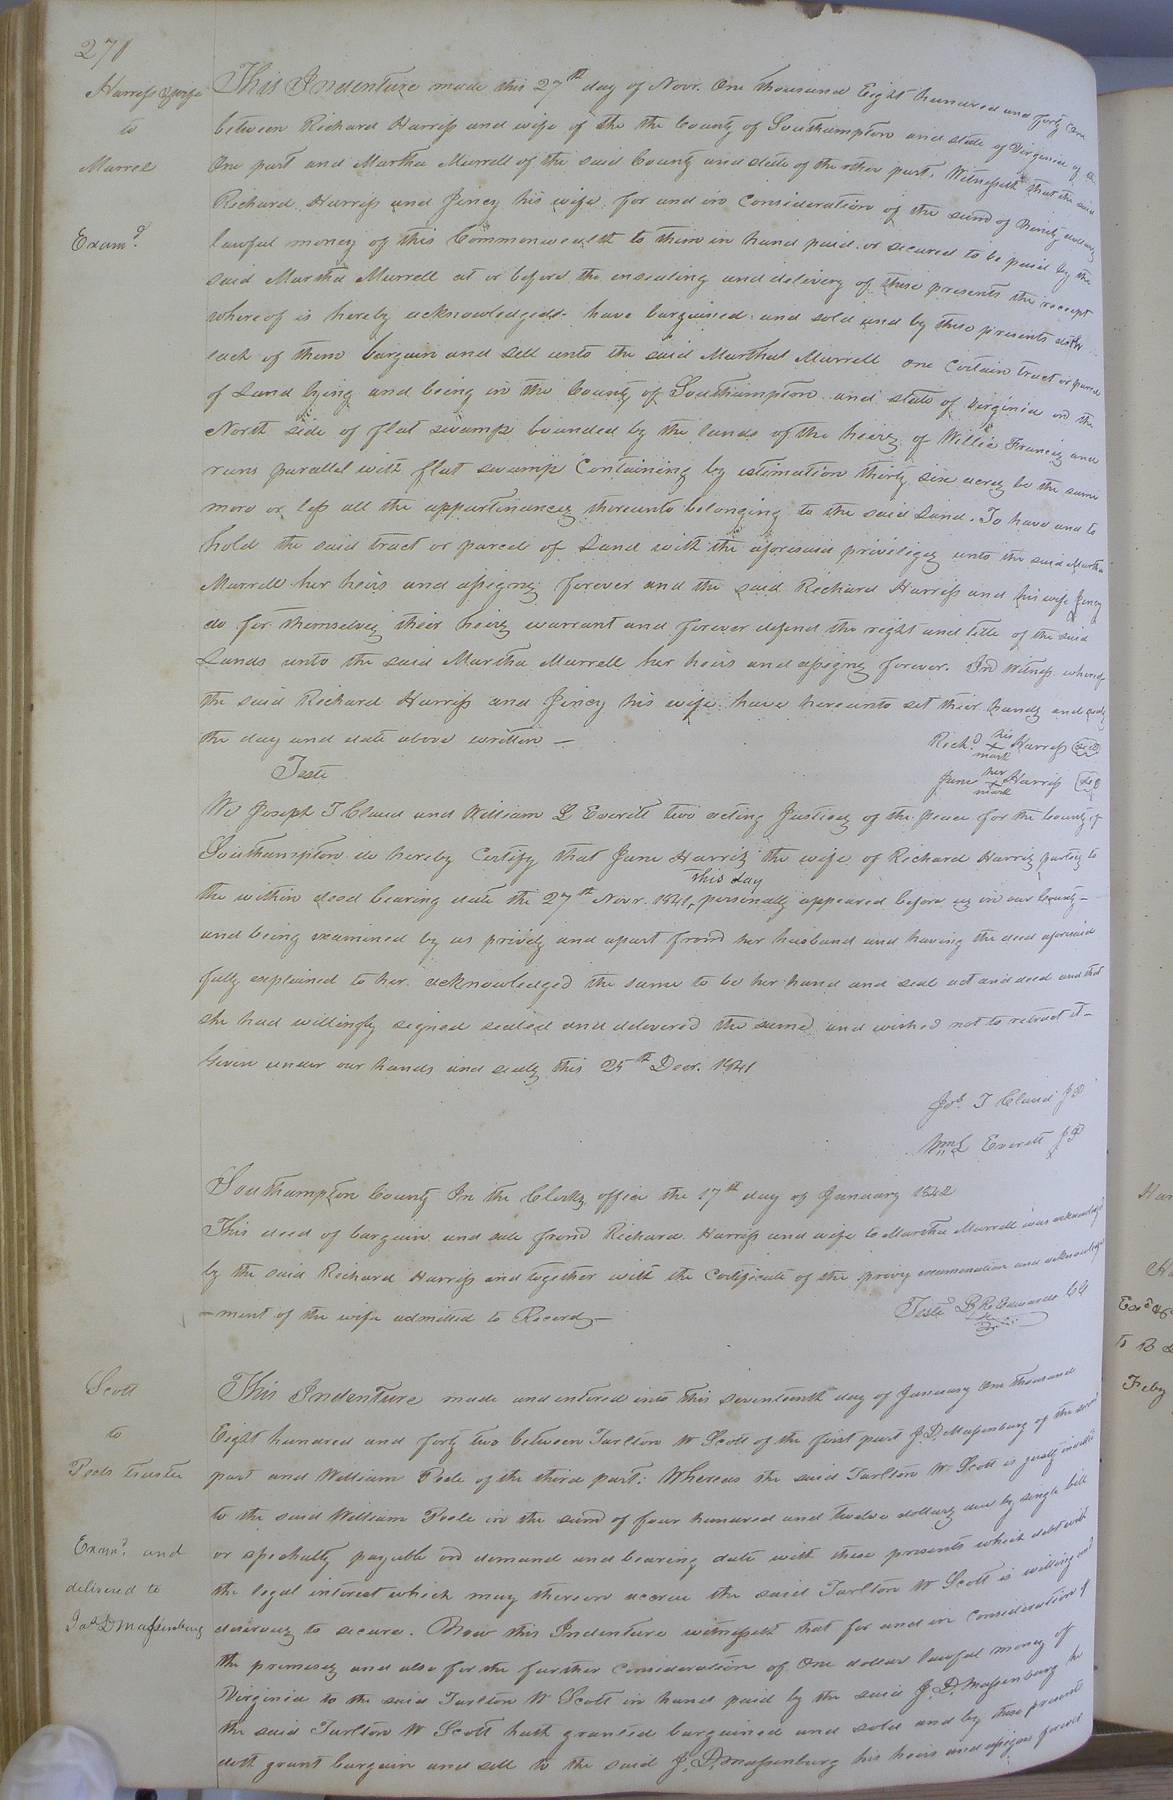 271
Harriss & wife
to
Murrel
Exam.d
This Indenture made this 27th day of Novr. One thousand Eight hundred and forty one
between Richard Harriss and wife of the the County of Southampton and state of Virginia of the
One part and Martha Murrell of the said County and state of the other part. Witnesseth that the said
Richard Harriss and Jincy his wife for and in consideration of the sum of Thirty dollars
lawful money of this Commonwealth to them in hand paid or secured to be paid by the
said Martha Murrell at or before the ensealing and delivery of these presents the receipt
whereof is hereby acknowledged have bargained and sold and by these presents doth
each of them bargain and sell unto the said Marthat Murrell one certain tract or parcel
of Land lying and being in the County of Southampton and state of Virginia on the
North side of flat swamp bounded by the lands of the heirs of Willie Francis and
runs parallel with flat swamp Containing by estimation thirty six acres be the same
more or less all the appurtinances thereunto belonging to the said Land. To have and to
hold the said tract or parcel of Land with the aforesaid privileges unto the said Martha
Murrell her heirs and assigns forever and the said Richard Harriss and his wife Jincy
do for themselves their heirs warrant and forever defend the right and title of the said
Lands unto the said Martha Murrell her heirs and assigns forever. In Witness whereof
the said Richard Harriss and Jincy his wife have hereunto set their hands and seals
the day and date above written —
Richd his + mark Harriss
Teste
Jane her + mark Harriss
We Joseph T Claud and William L Everett two acting Justices of the peace for the County of
Southampton do hereby Certify that Jane Harris the wife of Richard Harris parties to
the within deed bearing date the 27th Novr. 1841, this day personally appeared before us in our County—
and being examined by us privily and apart from her husband and having the deed aforesaid
fully explained to her acknowledged the same to be her hand and seal act and deed and that
she had willingly signed sealed and delivered the same and wished not to retract it—
Given under our hands and seals this 25th Decr. 1841
Jos. T Claud JP
Wm L Everett JP
Southampton County In the Clerks office the 17th day of January 1842
This deed of bargain and sale from Richard Harriss and wife to Martha Murrell was acknowledged
by the said Richard Harriss and together with the Certificate of the privy examination and acknowledge
-ment of the wife admitted to Record—
Teste Edwards CC
Scott
to
Pools trustee
Exam.d and
delivered to
Jas D Massenburg
This Indenture made and entered into this seventeenth day of January One thousand
Eight hundred and forty two between Tarlton W Scott of the first part J. D. Massenburg of the second
part and William Poole of the third part: Whereas the said Tarlton W Scott is justly indebted
to the said William Poole in the sum of four hundred and twelve dollars due by single bill
or specialty payable on demand and bearing date with these presents which debt with
the legal interest which may thereon accrue the said Tarlton W Scott is willing and
desirous to secure. Now this Indenture witnesseth that for and in consideration of
the premises and also for the further consideration of One dollar lawful money of
Virginia to the said Tarlton W Scott in hand paid by the said J. D. Massenburg he
the said Tarlton W Scott hath granted bargained and sold and by these presents
doth grant bargain and sell to the said J. D. Massenburg his heirs and assigns forever
Har
Feby